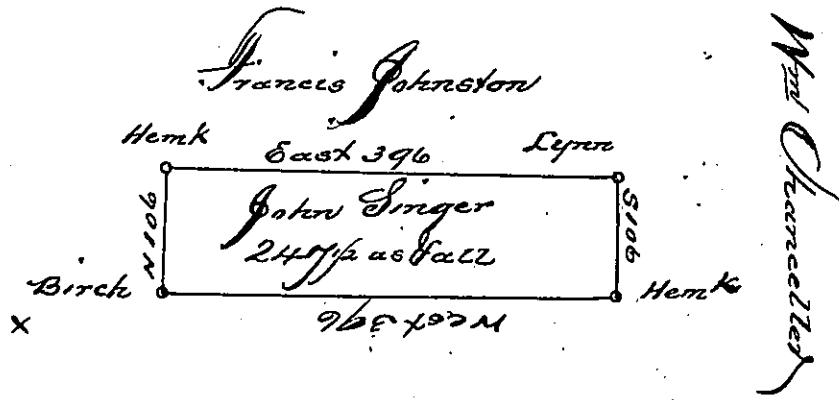 Francis Johnston
Hemk
East 396
Lynn
N106
John Singer
S106
247½ as & all
Birch
Hemk
West 396
x
Wm Chanceller